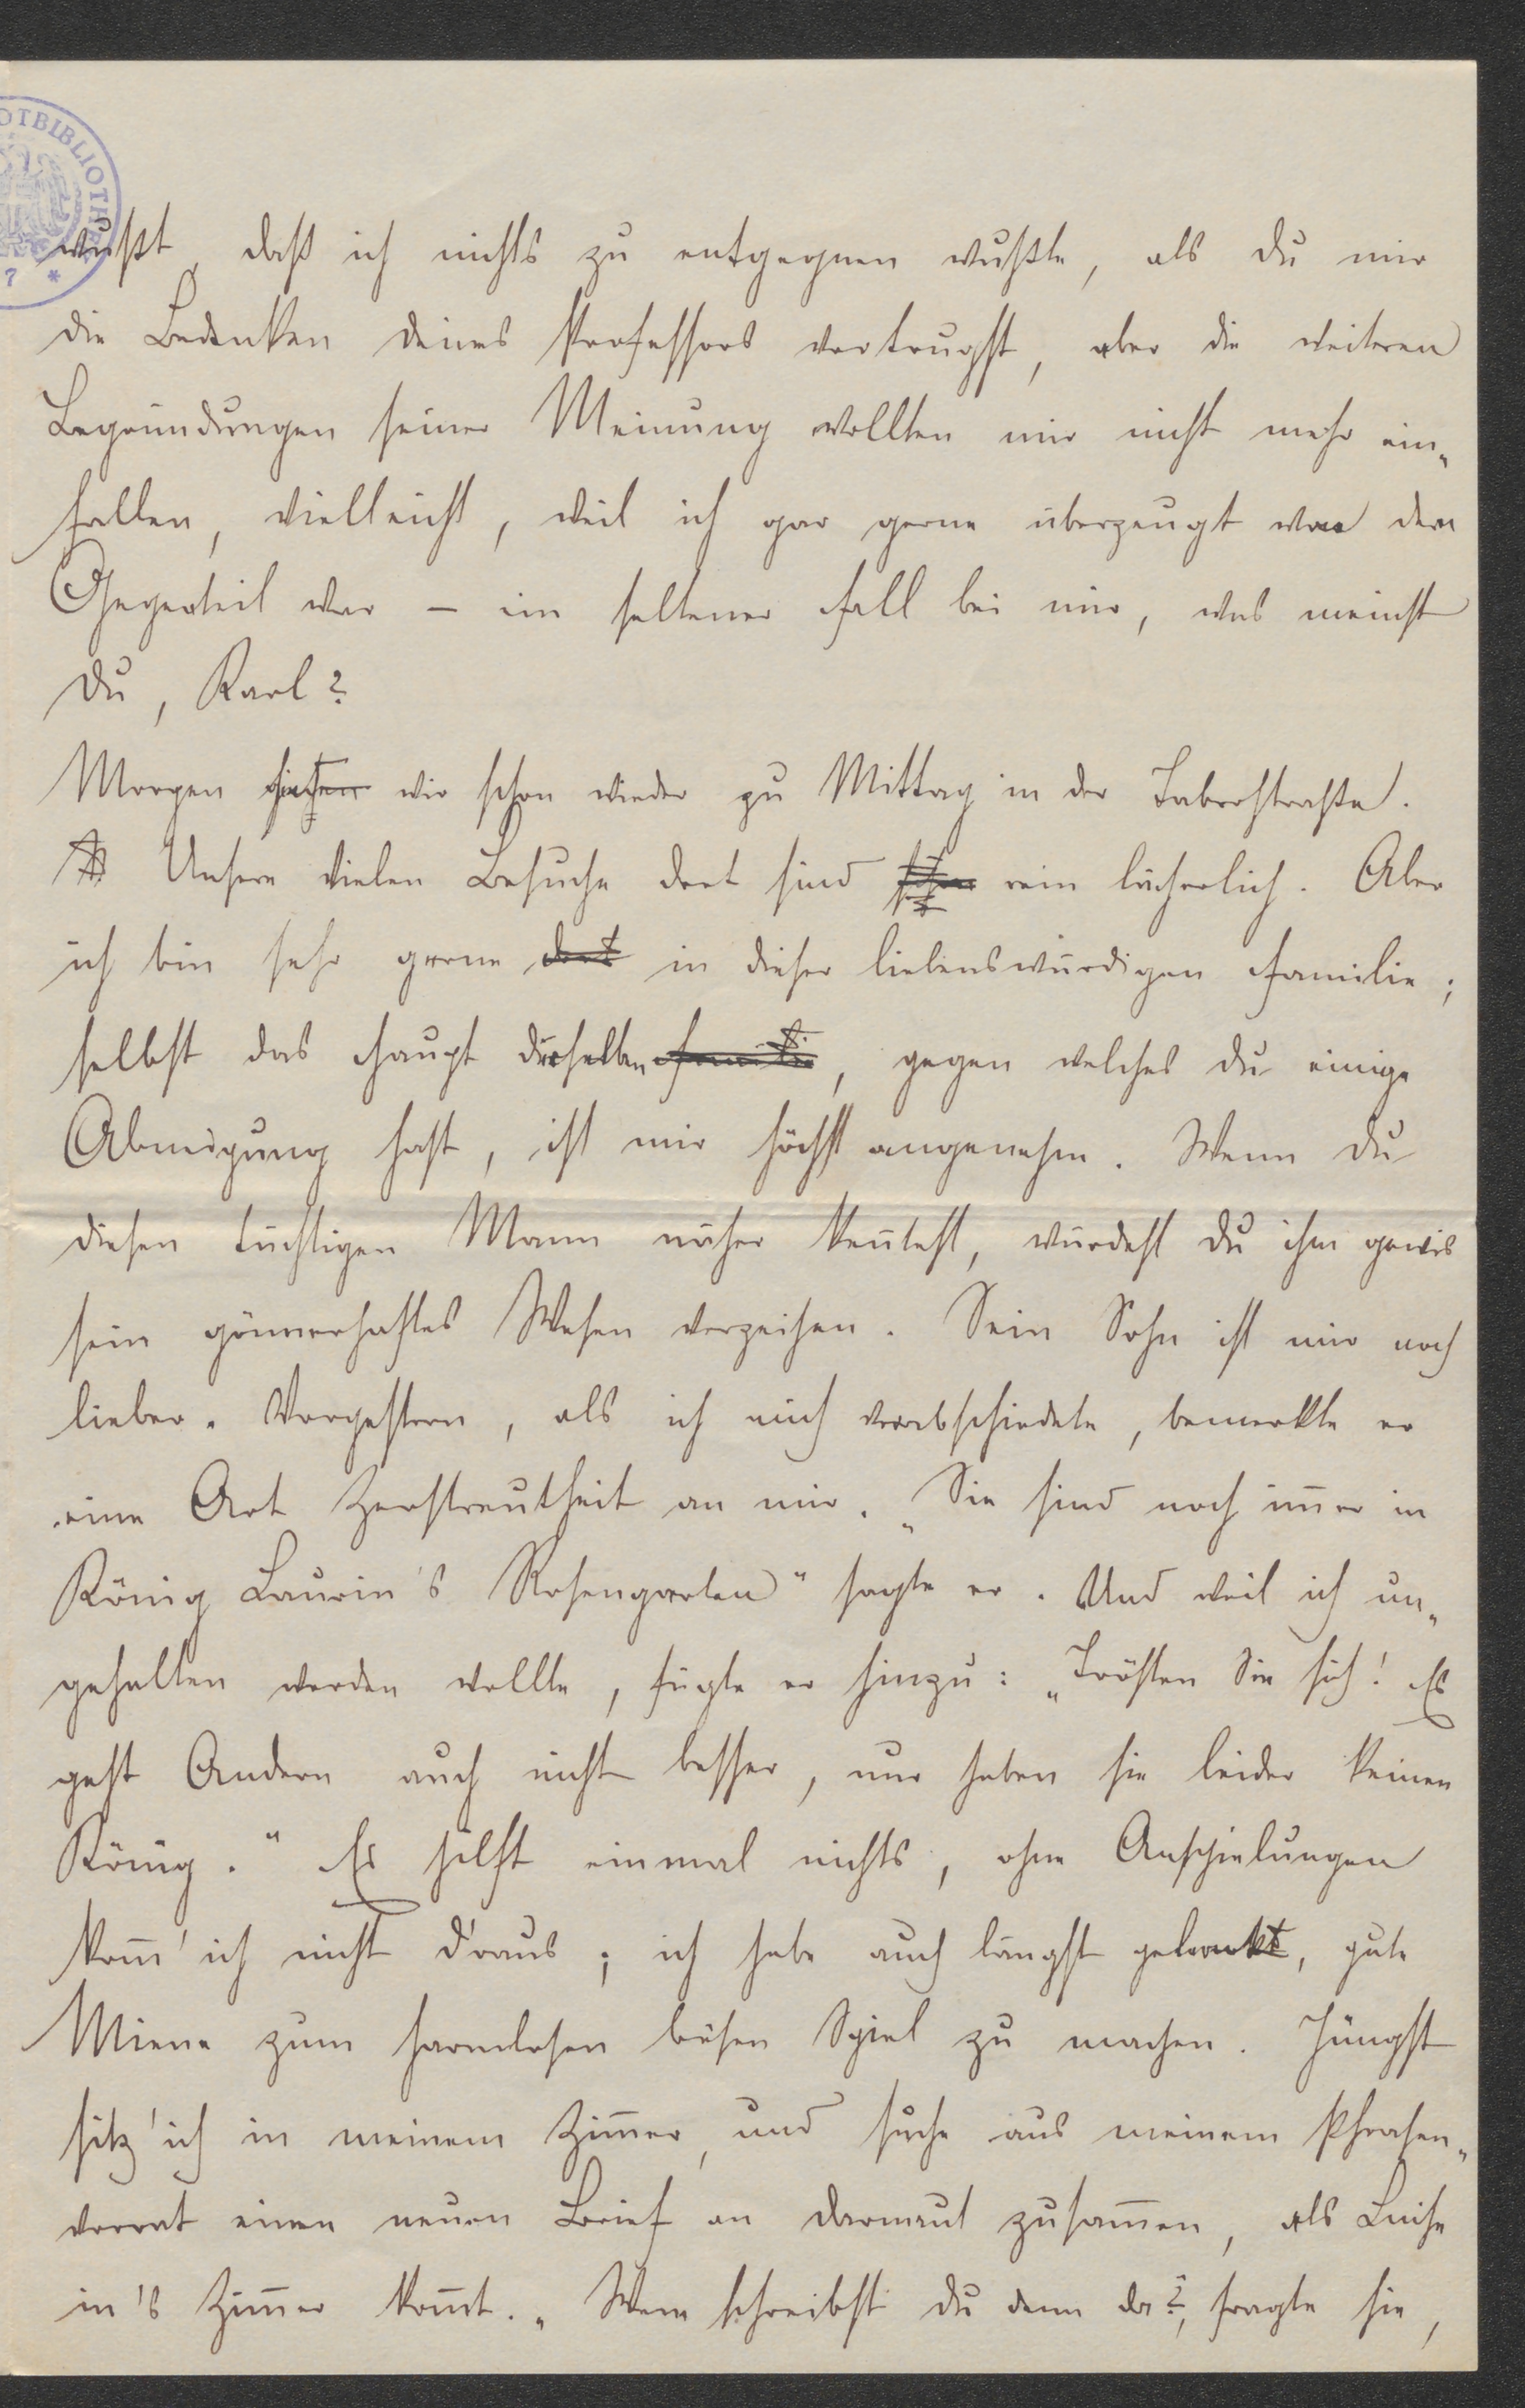 OTBIBLIOTHE
7 *
wußt, daß ich nichts zu entgegnen wußte, als du mir
die Bedenken deines Professors vortrugst, aber die weiteren
Begründungen seiner Meinung wollten mir nicht mehr ein„
fallen, vielleicht, weil ich gar gerne überzeugt von dem
Gegenteil war – ein seltener Fall bei mir, was meinst
Du, Karl?
Morgen wir schon wieder zu Mittag in der Taborstraße.
Unsere vielen Besuche dort sind schon rein lächerlich. Aber
ich bin sehr gerne dort in dieser liebenswürdigen Familie;
selbst das Haupt derselben Familie, gegen welches du einige
Abneigung hast, ist mir höchst angenehm. Wenn du
diesen tüchtigen Mann näher keñtest, würdest du ihm gewis
sein gönnerhaftes Wesen verzeihen. Sein Sohn ist mir noch
lieber. Vorgestern, als ich mich verabschiedete, bemerkte er
eine Art Zerstreutheit an mir. „Sie sind noch im̄er in
König Laurin's Rosengarten" sagte er. Und weil ich un„
gehalten werden wollte, fügte er hinzu: „Trösten Sie sich! Es
geht Andern auch nicht besser, nur haben sie leider keinen
König." Es hilft einmal nichts, ohne Anspielungen
kom̄' ich nicht d'raus; ich habe auch längst gelernt, gute
Miene zum harmlosen bösen Spiel zu machen. Jüngst
sitz' ich in meinem Zim̄er, und suche aus meinem Phrasen„
vorrat einen neuen Brief an Darmaut zusam̄en, als Luise
in's Zim̄er kom̄t. „Wem schreibst du denn da?, fragte sie,